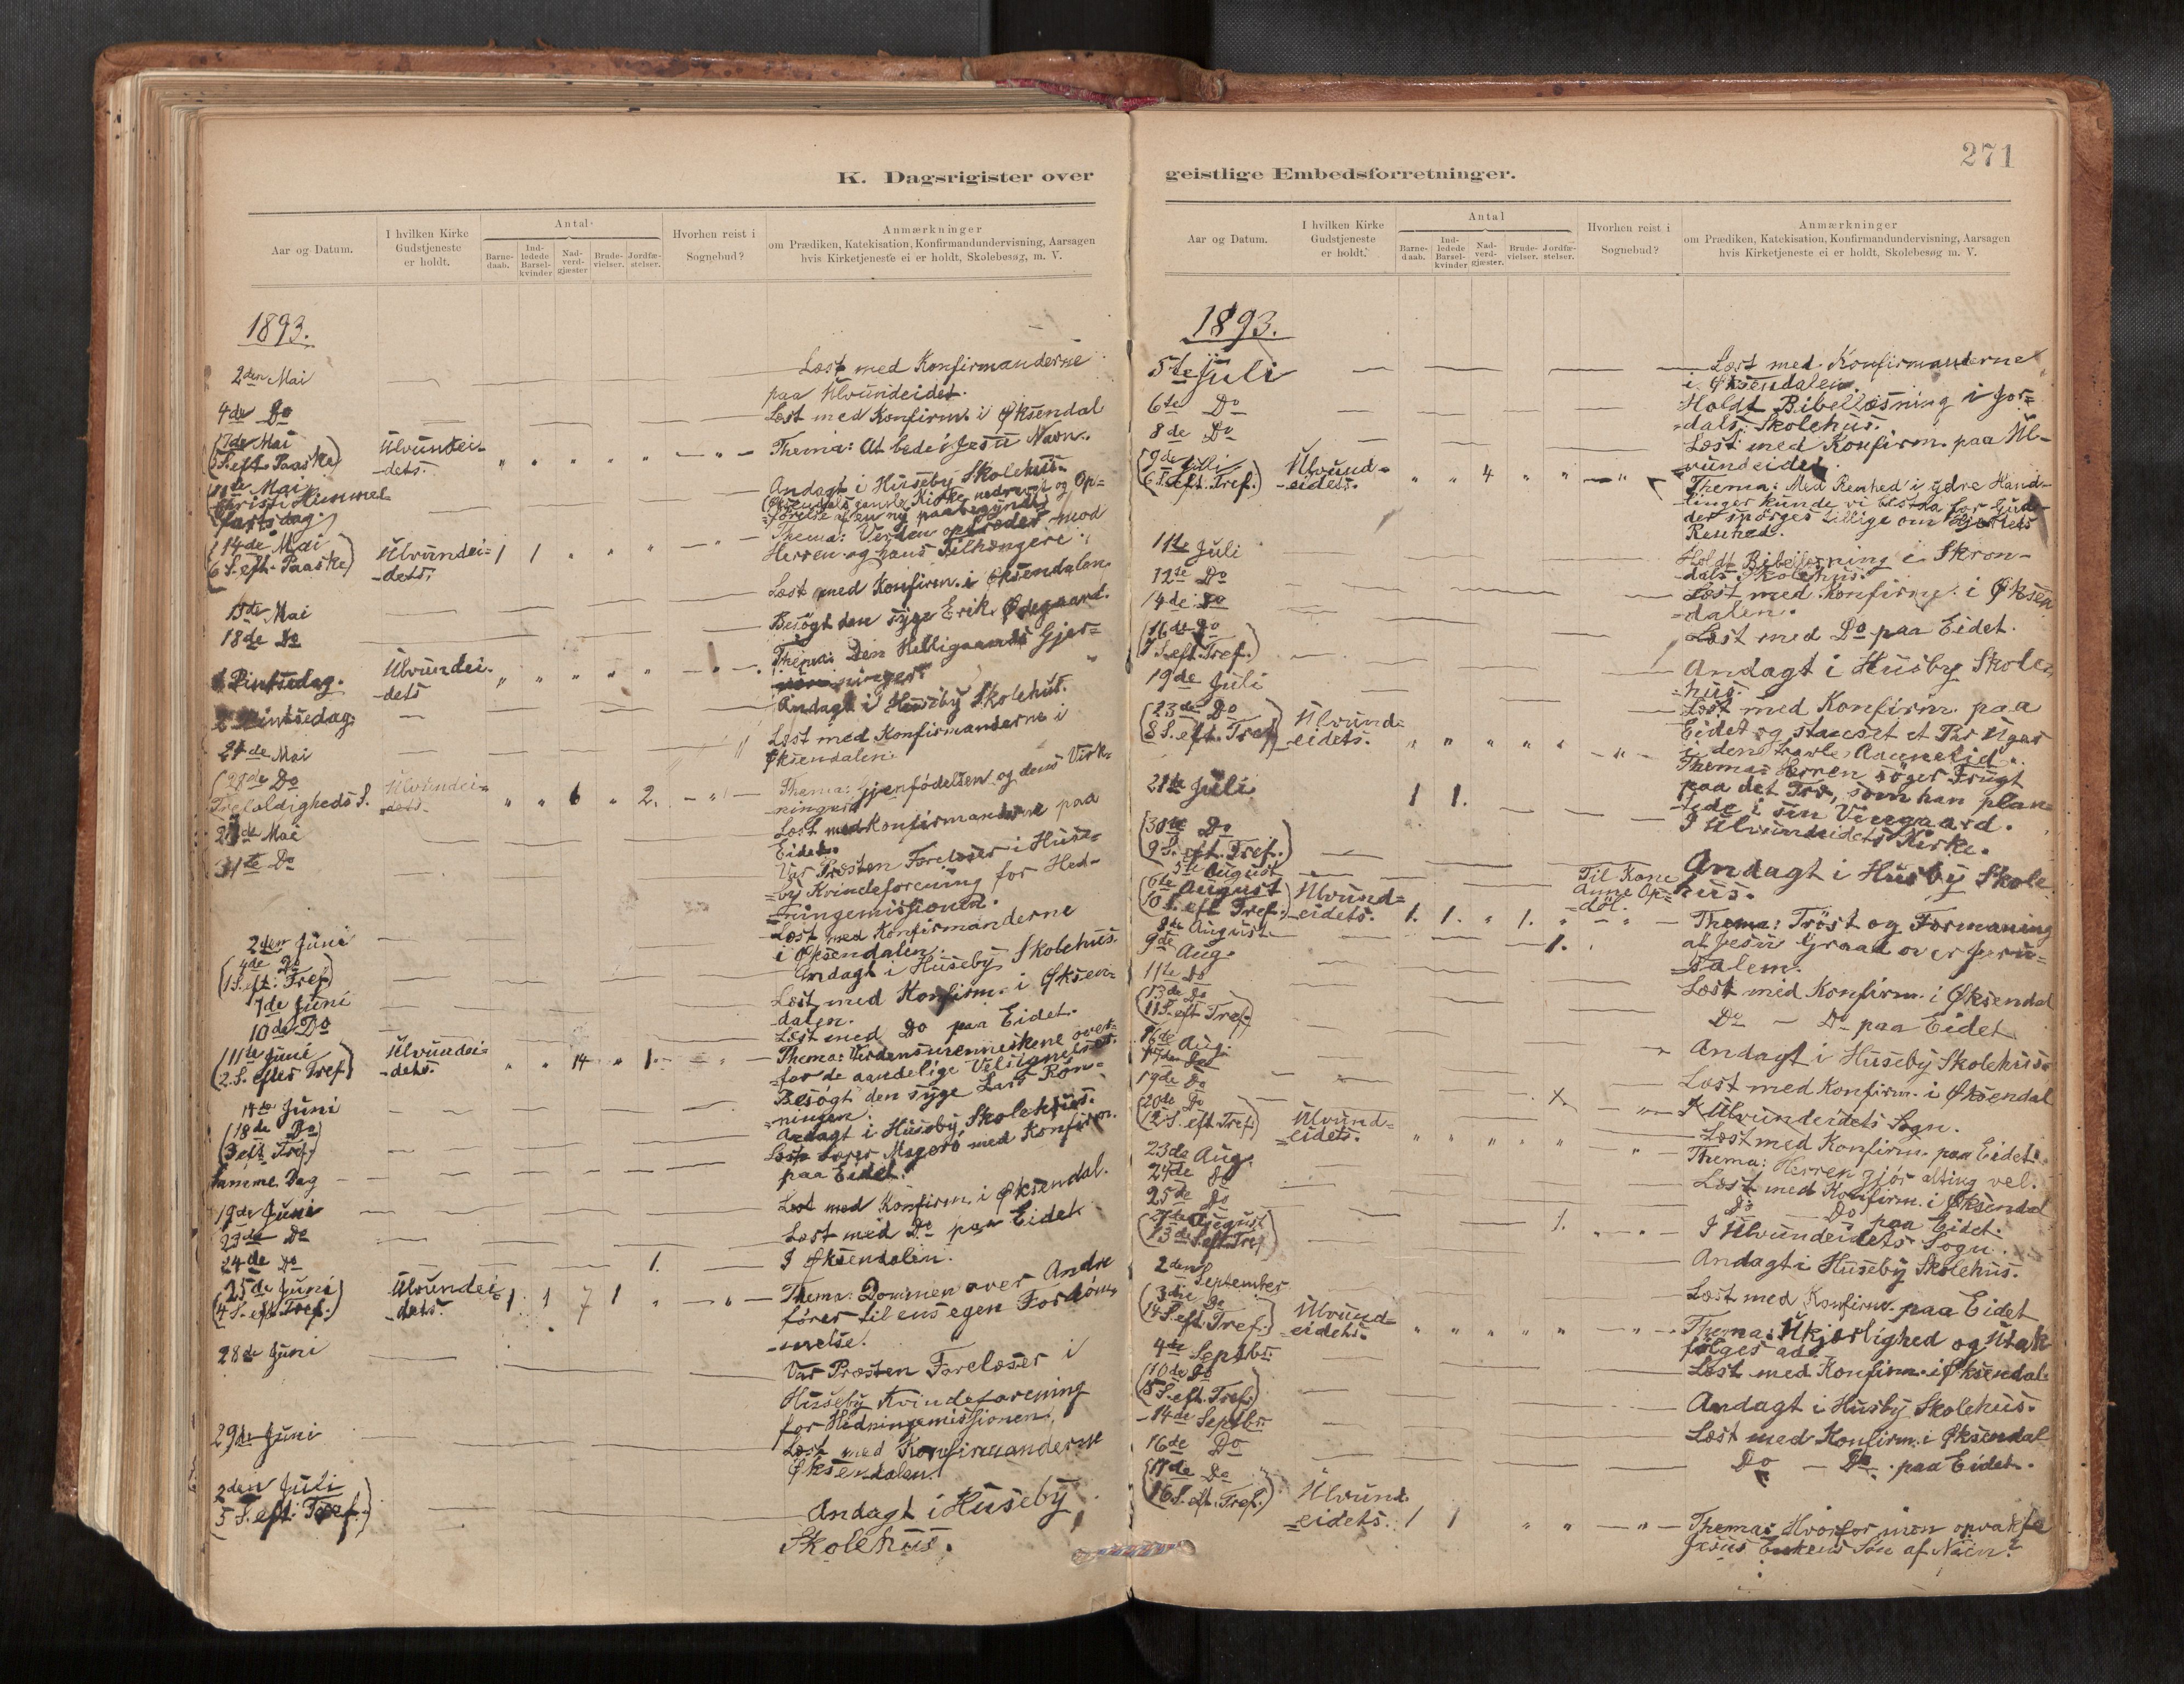 K. Dagsrigister over
Aar og Datum.
I hvilken Kirke
Gudstjeneste
er holdt.
Antal
Barne-
daab.
Ind-
ledede
Barsel-
kvinder
Nad-
verd-
gjæster
Brude-
vielser.
Jordfæ-
stelser.
Hvorhen reist i
Sognebud?
Anmærkninger
om Prædiken, Katekisation, Konfirmandundervisning, Aarsagen
hvis Kirketjeneste ei er holdt, Skolebesøg, m. V.
1893.
2den Mai
Læst med Konfirmanderne
paa Ulvundeidet.
4de Do
Læst med Konfirm. i Øksendal
(7de Mai
5 S. eft. Paaske)
Ulvundei-
-dets.
Thema: At bede i Jesu Navn.
Mai
Christi Himmel-
fartsdag.
Andagt i Huseby Skolehus.
(Øksendals gamle Kirke nedrevet og Op-
=førelse af en ny paabegyndt)
(14de Mai
6 S. eft. Paaske)
Ulvundei=
-dets.
1 1
Thema: Verden optræder mod
Herren og hans Tilhængere.
15de Mai
Læst med Konfirm. i Øksendalen.
18de Do
Besøgt den syge Erik Ødegaard.
1 Pintsedag.
Ulvundei-
-dets
Thema: Den Helligaands Gjer=
ninger.
2 Pintsedag.
Andagt i Huseby Skolehus.
24de Mai
Læst med Konfirmanderne i
Øksendalen.
(28de Do
Trefoldigheds S.
Ulvundei-
dets.
6 2.
Thema: Gjenfødelsen og dens Virk-
ninger.
Mai
Læst med Konfirmanderne paa
Eidet.
31te Do
Var Præsten Forelæser i Huse-
=by Kvindeforening for Hed-
=ningemissionen.
2den Juni
Læst med Konfirmanderne
i Øksendalen.
(4de Do
1 S. eft. Tref.)
Andagt i Huseby Skolehus.
7de Juni
Læst med Konfirm. i Øksen-
dalen.
10de Do
Læst med Do paa Eidet.
(11te Juni
2. S. efter Tref.)
Ulvundei=
-dets.
14 1
Thema: Verdensmenneskene over-
for de aandelige Velsignelser.
14de Juni
Besøgt den syge Lars Røn-
=ningen.
(18de Do
3 eft Tref.)
Andagt i Huseby Skolehus.
Samme Dag
Læste Lærer Magerø med Konfirm.
paa Eidet.
19de Juni
Læst med Konfirm. i Øksendal.
23de Do
Læst med Do paa Eidet
24de Do
1.
I Øksendalen.
(25de Juni
4 S. eft. Tref.)
Ulvundei-
-dets.
1 1 7 1
Thema: Dommen over Andre
fører til ens egen Fordøm-
-melse.
28de Juni
Var Præsten Forelæser i
Huseby Kvindeforening
for Hedningemissionen.
29de Juni
Læst med Konfirmanderne
Øksendalen.
2den Juli
5 S. eft. Tref.)
Andagt i Huseby
Skolehus.
271
geistlige Embedsforretninger.
Aar og Datum.
I hvilken Kirke
Gudstjeneste
er holdt.
Antal
Barne-
daab.
Ind-
ledede
Barsel-
kvinder
Nad-
verd-
gjæster.
Brude-
vielser.
Jordfæ-
stelser.
Hvorhen reist i
Sognebud?
Anmærkninger
om Prædiken, Katekisation, Konfirmandundervisning, Aarsagen
hvis Kirketjeneste ei er holdt, Skolebesøg m. V.
1893.
5te Juli
Læst med Konfirmanderne
i Øksendalen.
6te Do
Holdt Bibellæsning i Jor=
=dals Skolehus.
8de Do
Læst med Konfirm. paa Ul-
vundeidet.
(9de Juli
6 S. eft. Tref.)
Ulvund-
-eidets.
4
Thema: Med Renhed i ydre Hand-
linger kunde vi bestaa for Gud-
der spørges tillige om Hjertets
Renhed.
11te Juli
Holdt Bibellæsning i Skron-
dals Skolehus.
12te Do
Læst med Konfirm. i Øksen
-dalen.
14de Do
Læst med Do paa Eidet.
(16de Do
7 S. eft. Tref.)
Andagt i Husby Skole-
=hus.
19de Juli
Læst med Konfirm. paa
Eidet og
(23de Do
8 S. eft. Tref.)
Ulvund=
-eidets.
Thema: Herren søger Frugt
paa det Træ, som han plan-
-tede i sin Vingaard.
Juli
1 1.
I Ulvundeidets Kirke.
(30te Do
9 S. eft. Tref.)
Andagt i Husby Skole
hus.
5te August
Til Kone
(6te August
10 S. eft Tref.)
Ulvund=
-eidets.
1. 1. 1.
Thema: Trøst og Formaning
af Jesu Graad over Jeru=
-salem.
8de August
1.
9de Aug.
Læst med Konfirm. i Øksendal
11te Do
Do - Do paa Eidet
(13de Do
11 S. eft Tref.)
Andagt i Huseby Skolehus.
16de Aug.
Læst med Konfirm. i Øksendal
I Ulvundeidets Sogn.
19de Do
Læst med Konfirm. paa Eidet.
(20de Do
12 S. eft Tref.)
Ulvund=
-eidets.
Thema: Herren gjør alting vel.
23de Aug.
Læst med Konfirm. i Øksendal
24de Do
Do Do paa Eidet.
25de Do
1.
I Ulvundeidets Sogn.
(27de August
13de S. eft. Tref.)
Andagt i Huseby Skolehus.
2den September
Læst med Konfirm. paa Eidet
(3die Do
14 S. eft. Tref.)
Ulvund=
-eidets.
Thema: Ukjærlighed og Utak
følges ad.
4de Septbr
Læst med Konfirm. i Øksendal
(10de Do
15 S. eft. Tref.)
Andagt i Husby Skolehus.
14de Septbr
Læst med Konfirm. i Øksendal
16de Do
Do - Do paa Eidet.
(17de Do
16 S. eft. Tref.)
Ulvund-
=eidets.
1 1
Thema: Hvorfor mon opvakte
Jesus Enkens Søn af Nain?